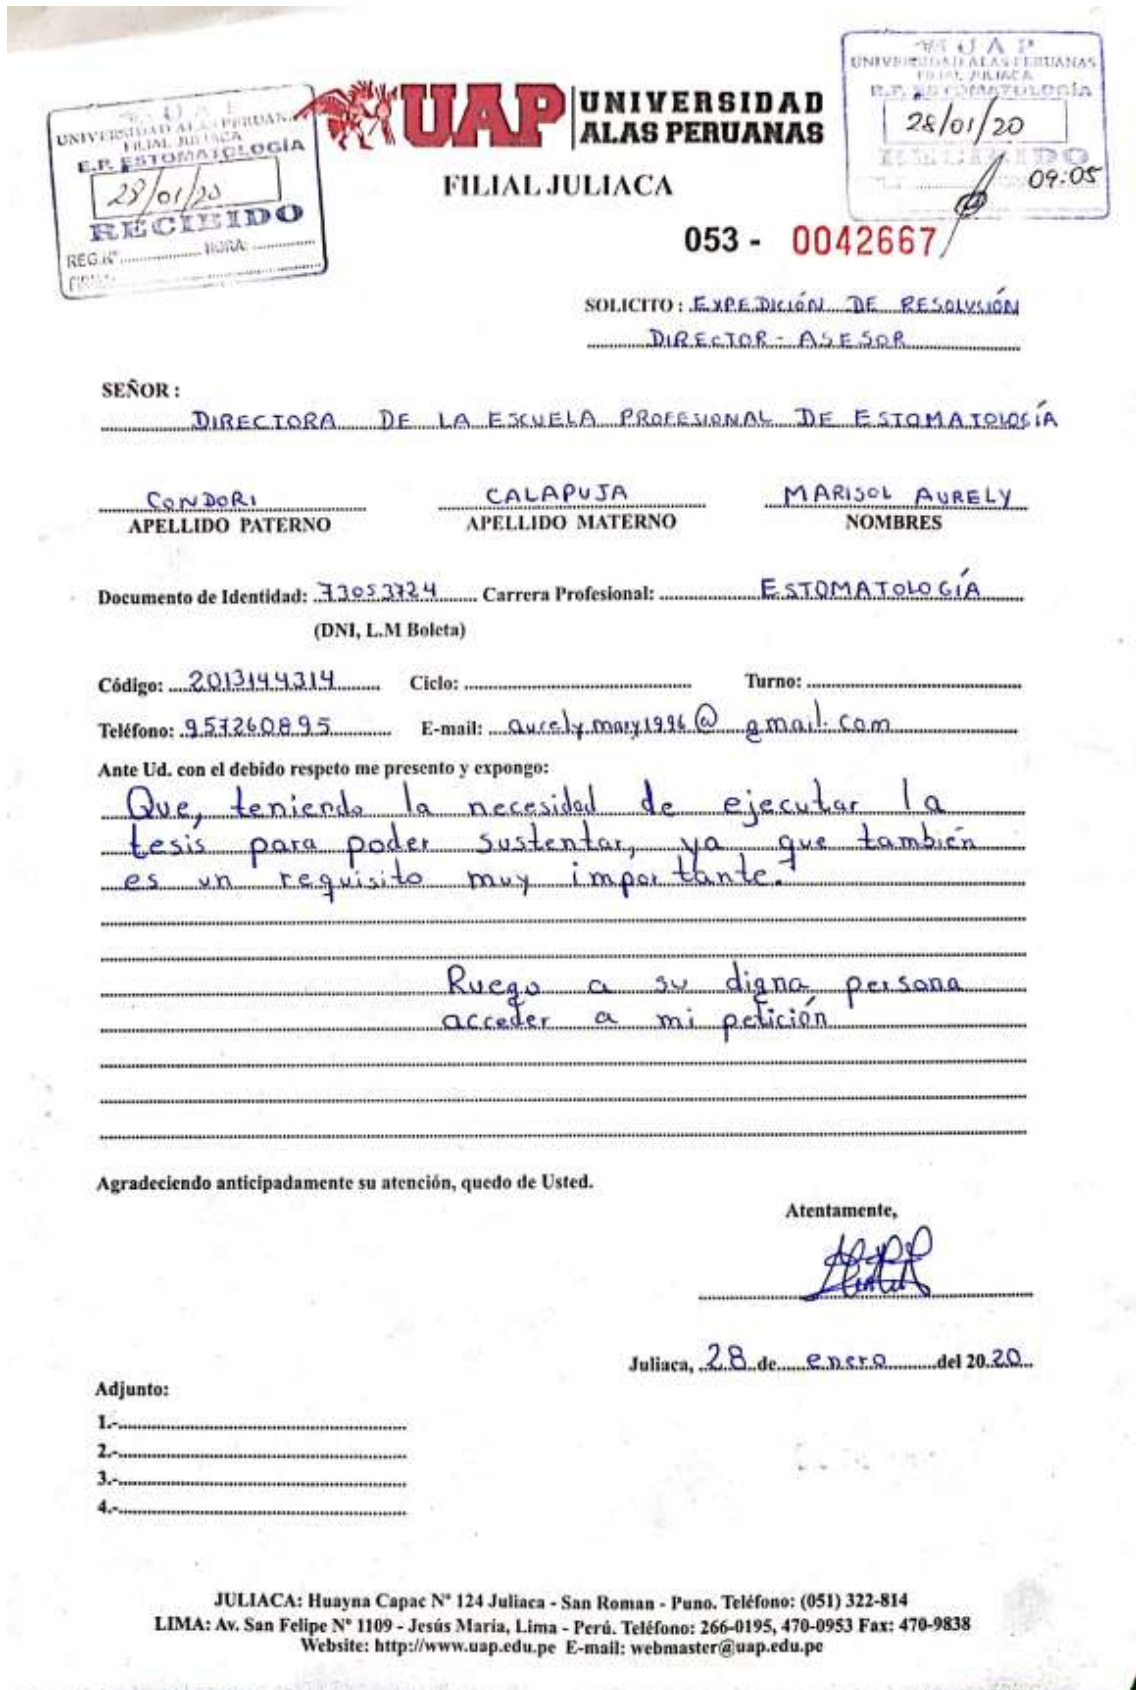 UAP
UNIVERSIDAD ALAS PERUANAS
FILIAL JULIACA
E.P. ESTOMATOLOGÍA
28/01/20
RECIBIDO
REG.Nº HORA:
FIRMA:
UAP UNIVERSIDAD
ALAS PERUANAS
FILIAL JULIACA
UAP
UNIVERSIDAD ALAS PERUANAS
FILIAL JULIACA
E.P. ESTOMATOLOGÍA
28/01/20
RECIBIDO
09:05
053 - 0042667
SOLICITO: EXPEDICIÓN DE RESOLUSIÓN
DIRECTOR - ASESOR
SEÑOR:
DIRECTORA DE LA ESCUELA PROFESIONAL DE ESTOMATOLOGÍA
CONDORI CALAPUJA MARISOL AURELY
APELLIDO PATERNO APELLIDO MATERNO NOMBRES
Documento de Identidad: 73053724 Carrera Profesional: ESTOMATOLOGÍA
(DNI, L.M Boleta)
Código: 2013144314 Ciclo: Turno:
Teléfono: 957260895 E-mail: aurely.mary1996@gmail.com
Ante Ud. con el debido respeto me presento y expongo:
Que, teniendo la necesidad de ejecutar la
tesis para poder sustentar, ya que también
es un requisito muy importante.
Ruego a su digna persona
acceder a mi petición
Agradeciendo anticipadamente su atención, quedo de Usted.
Atentamente,
Juliaca, 28 de enero del 2020
Adjunto:
1.-
2.-
3.-
4.-
JULIACA: Huayna Capac Nº 124 Juliaca - San Roman - Puno. Teléfono: (051) 322-814
LIMA: Av. San Felipe Nº 1109 - Jesús María, Lima - Perú. Teléfono: 266-0195, 470-0953 Fax: 470-9838
Website: http://www.uap.edu.pe E-mail: webmaster@uap.edu.pe